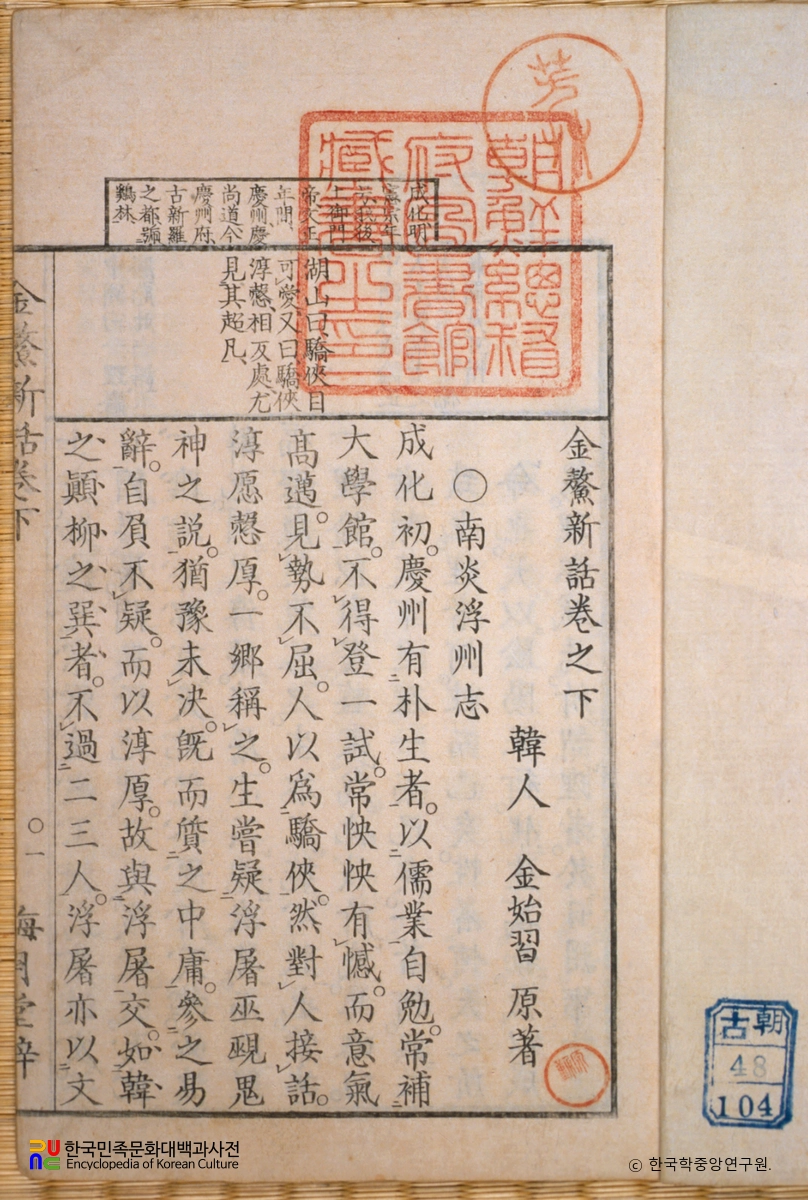 朝鮮總督
府圖書館
藏書之印
成化明
憲宗年
帝文正
年間、
慶州、慶
尚道、今
慶州府、
古新羅
之都、號
鷄林、
湖山曰、驕俠目
可愛、又曰驕俠
淳愨、相反處、尤
見其超凡、
金鰲新話卷之下
韓人 金始習 原著
○南炎浮州志
成化初。慶州有朴生者。以儒業自勉。常補
大學館。不得登一試。常怏怏有憾。而意氣
高邁。見勢不屈。人以爲驕俠。然對人接話。
淳愿愨厚。一鄉稱之。生嘗疑浮屠巫覡鬼
神之説。猶豫未决。旣而質之中庸。參之易
辭。自負不疑。而以淳厚。故與浮屠交。如韓
之顚柳之巽者。不過二三人。浮屠亦以文
金鰲新話卷下 〇一 梅月堂梓
朝
古
48
104
한국민족문화대백과사전
Encyclopedia of Korean Culture
ⓒ 한국학중앙연구원.